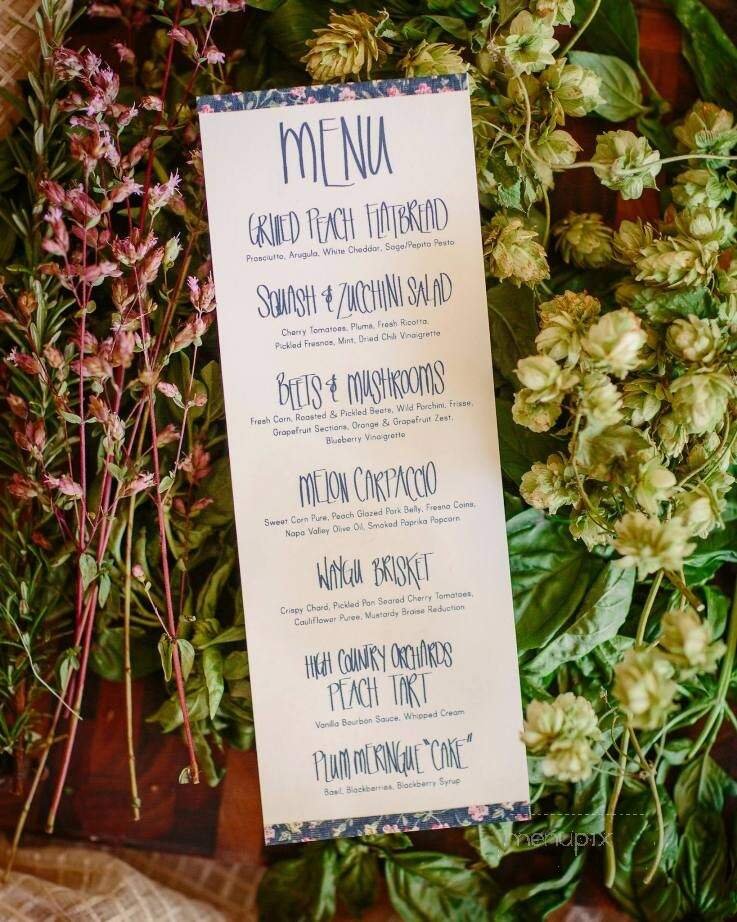 MENU
GRILLED PEACH FLATBREAD
Prosciutto, Arugula, White Cheddar, Sage/Pepita Pesto
SQUASH & ZUCCHINI SALAD
Cherry Tomatoes, Plums, Fresh Ricotta,
Pickled Fresnos, Mint, Dried Chili Vinaigrette
BEETS & MUSHROOMS
Fresh Corn, Roasted & Pickled Beets, Wild Porchini, Frisse,
Grapefruit Sections, Orange & Grapefruit Zest,
Blueberry Vinaigrette
MELON CARPACCIO
Sweet Corn Pure, Peach Glazed Pork Belly, Fresno Coins,
Napa Valley Olive Oil, Smoked Paprika Popcorn
WAYGU BRISKET
Crispy Chard, Pickled Pan Seared Cherry Tomatoes,
Cauliflower Puree, Mustardy Braise Reduction
HIGH COUNTRY ORCHARDS
PEACH TART
Vanilla Bourbon Sauce, Whipped Cream
PLUM MERINGUE "CAKE"
Basil, Blackberries, Blackberry Syrup
menupix